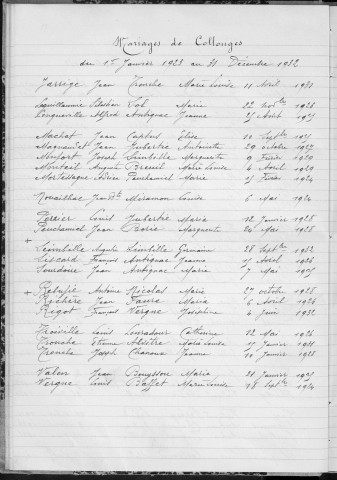 Mariages de Collonges
du 1er Janvier 1923 au 31 Décembre 1932
Jarrige Jean Trouche Marie Louise 11 Avril
Lequillaumie Sébastien Sol Marie 12 1925
Longueville Alfred Antignac Jeanne Août
Machat Jean Capbul Elise 10 Septbre
Magnaudet Jean Jubertre Antoinette 29 octobre 1927
Monfort Joseph Leimbille Marguerite 9 Février 1929
Monteil Auguste Breuil Marie Louise 6 Avril 1929
Mortessagne Pauchamiel Marie Février 1924
Nouailhac Jean Bte Miramon Louise 6 Mai 1924
Perrier Louis Jubertre Maria 12 Janvier 1928
Pauchamiel Jean Borie Marguerite Mai 1928
+ Leimbille Augustin Leimbille Germaine 28 Septbre 1932
Liscard François Antignac Jeanne Avril 1926
Sourdoire Jean Antignac Marie 7 Mai
+ Relupié Antoine Nicolas Marie 27 octobre 1928
Rochère Jean Faure Maria 6 Avril 1926
Rigot François Vergne Joséphine 4 Juin 1932
Louis Louradour Catherine 12 Mai 1926
Trouche Etienne Marie Louise Janvier
Trenche Joseph Chanoux Jeanne 10 Janvier 1928
Valen Jean Bouyssou Maria 21 Janvier
Vergne Louis Baffet Marie Louise 18 Septbre 1924